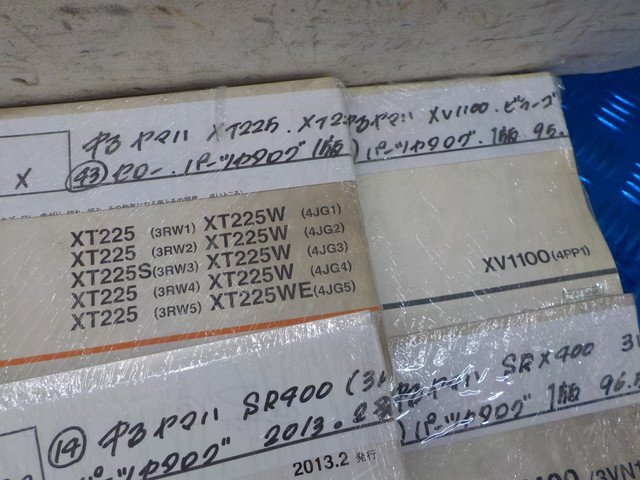 X
中古 ヤマハ XT225. XT2
43 セロー. パーツカタログ 1版
XT225 (3RW1) XT225W (4JG1)
XT225 (3RW2) XT225W (4JG2)
XT225S (3RW3) XT225W (4JG3)
XT225 (3RW4) XT225W (4JG4)
XT225 (3RW5) XT225WE (4JG5)
中古 ヤマハ XV1100. ビラーゴ
パーツカタログ. 1版 95.
XV1100 (4PP1)
14 中古 ヤマハ SR400 (3H
パーツカタログ 2013.2
2013.2 発行
中古 ヤマハ SRX400 3
パーツカタログ 1版 96.
(3VN1